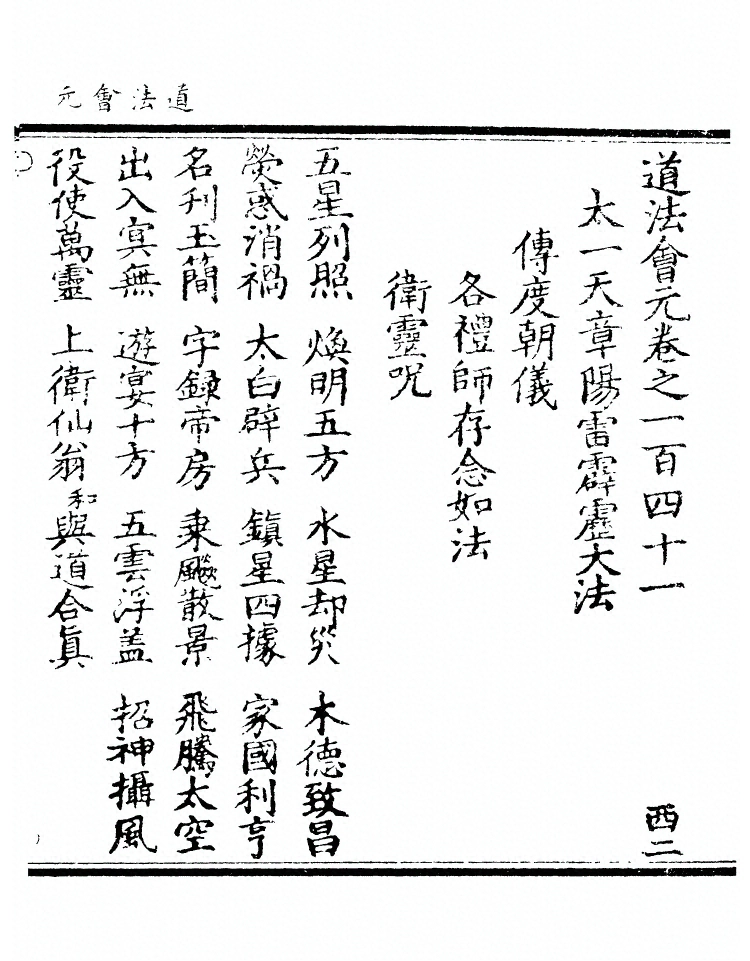 道法會元
道法會元卷之一百四十一
西二
太一天章陽雷霹靂大法
傳度朝儀
各禮師存念如法
衛靈呪
五星列照 煥明五方 水星却災 木德致昌
熒惑消禍 太白辟兵 鎮星四據 家國利亨
名刊玉簡 字錄帝房 乘飈散景 飛騰太空
出入冥無 遊宴十方 五雲浮盖 招神攝風
役使萬靈 上衛仙翁 和 與道合眞